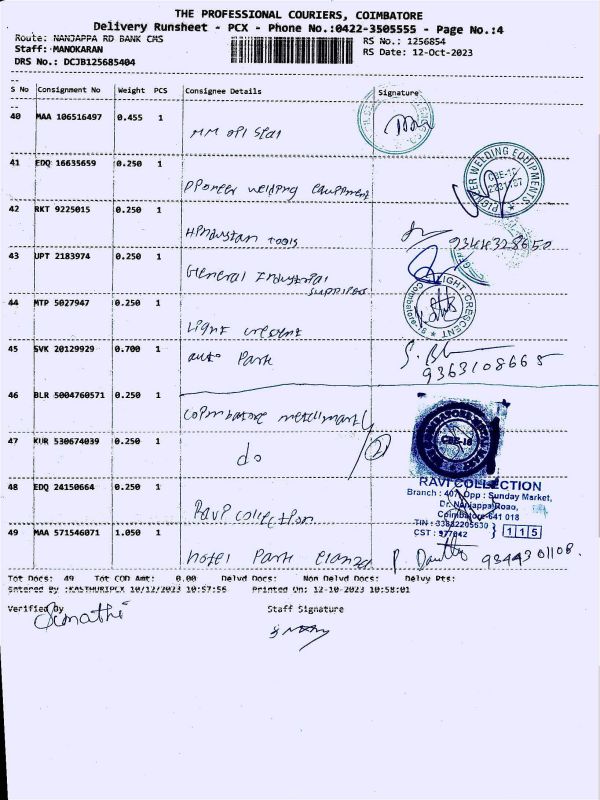 THE PROFESSIONAL COURIERS, COIMBATORE
Delivery Runsheet - PCX - Phone No.:0422-3505555 - Page No.:4
Route: NANJAPPA RD BANK CMS
RS No.: 1256854
Staff: MANOKARAN
RS Date: 12-Oct-2023
DRS No.: DCJB125685404
S No Consignment No Weight PCS Consignee Details Signature
40 MAA 106516497 0.455 1
41 EDQ 16635659 0.250 1
Pioneer welding equipment
PIONEER WELDING EQUIPMENTS
42 RKT 9225015 0.250 1
Hindustan Tools
9344328650
43 UPT 2183974 0.250 1
General Industrial
suppliers
44 MTP 5027947 0.250 1
Light crescent
LIGHT CRESCENT
45 SVK 20129929 0.700 1
auto Park
9363108665
46 BLR 5004760571 0.250 1
Coimbatore metal mart
47 KUR 530674039 0.250 1
do
48 EDQ 24150664 0.250 1
Ravi collection
RAVI COLLECTION
Branch : 407, Opp : Sunday Market,
Dr. Nanjappa Road,
Coimbatore-641 018
TIN : 33882205630
CST : 977042
115
49 MAA 571546071 1.050 1
hotel Park elanza
9344301108.
Tot Docs: 49 Tot COD Amt: 0.00 Delvd Docs: Non Delvd Docs: Delvy Pts:
Entered By :KASTHURIPCX 10/12/2023 10:57:56 Printed On: 12-10-2023 10:58:01
Verified By
Staff Signature